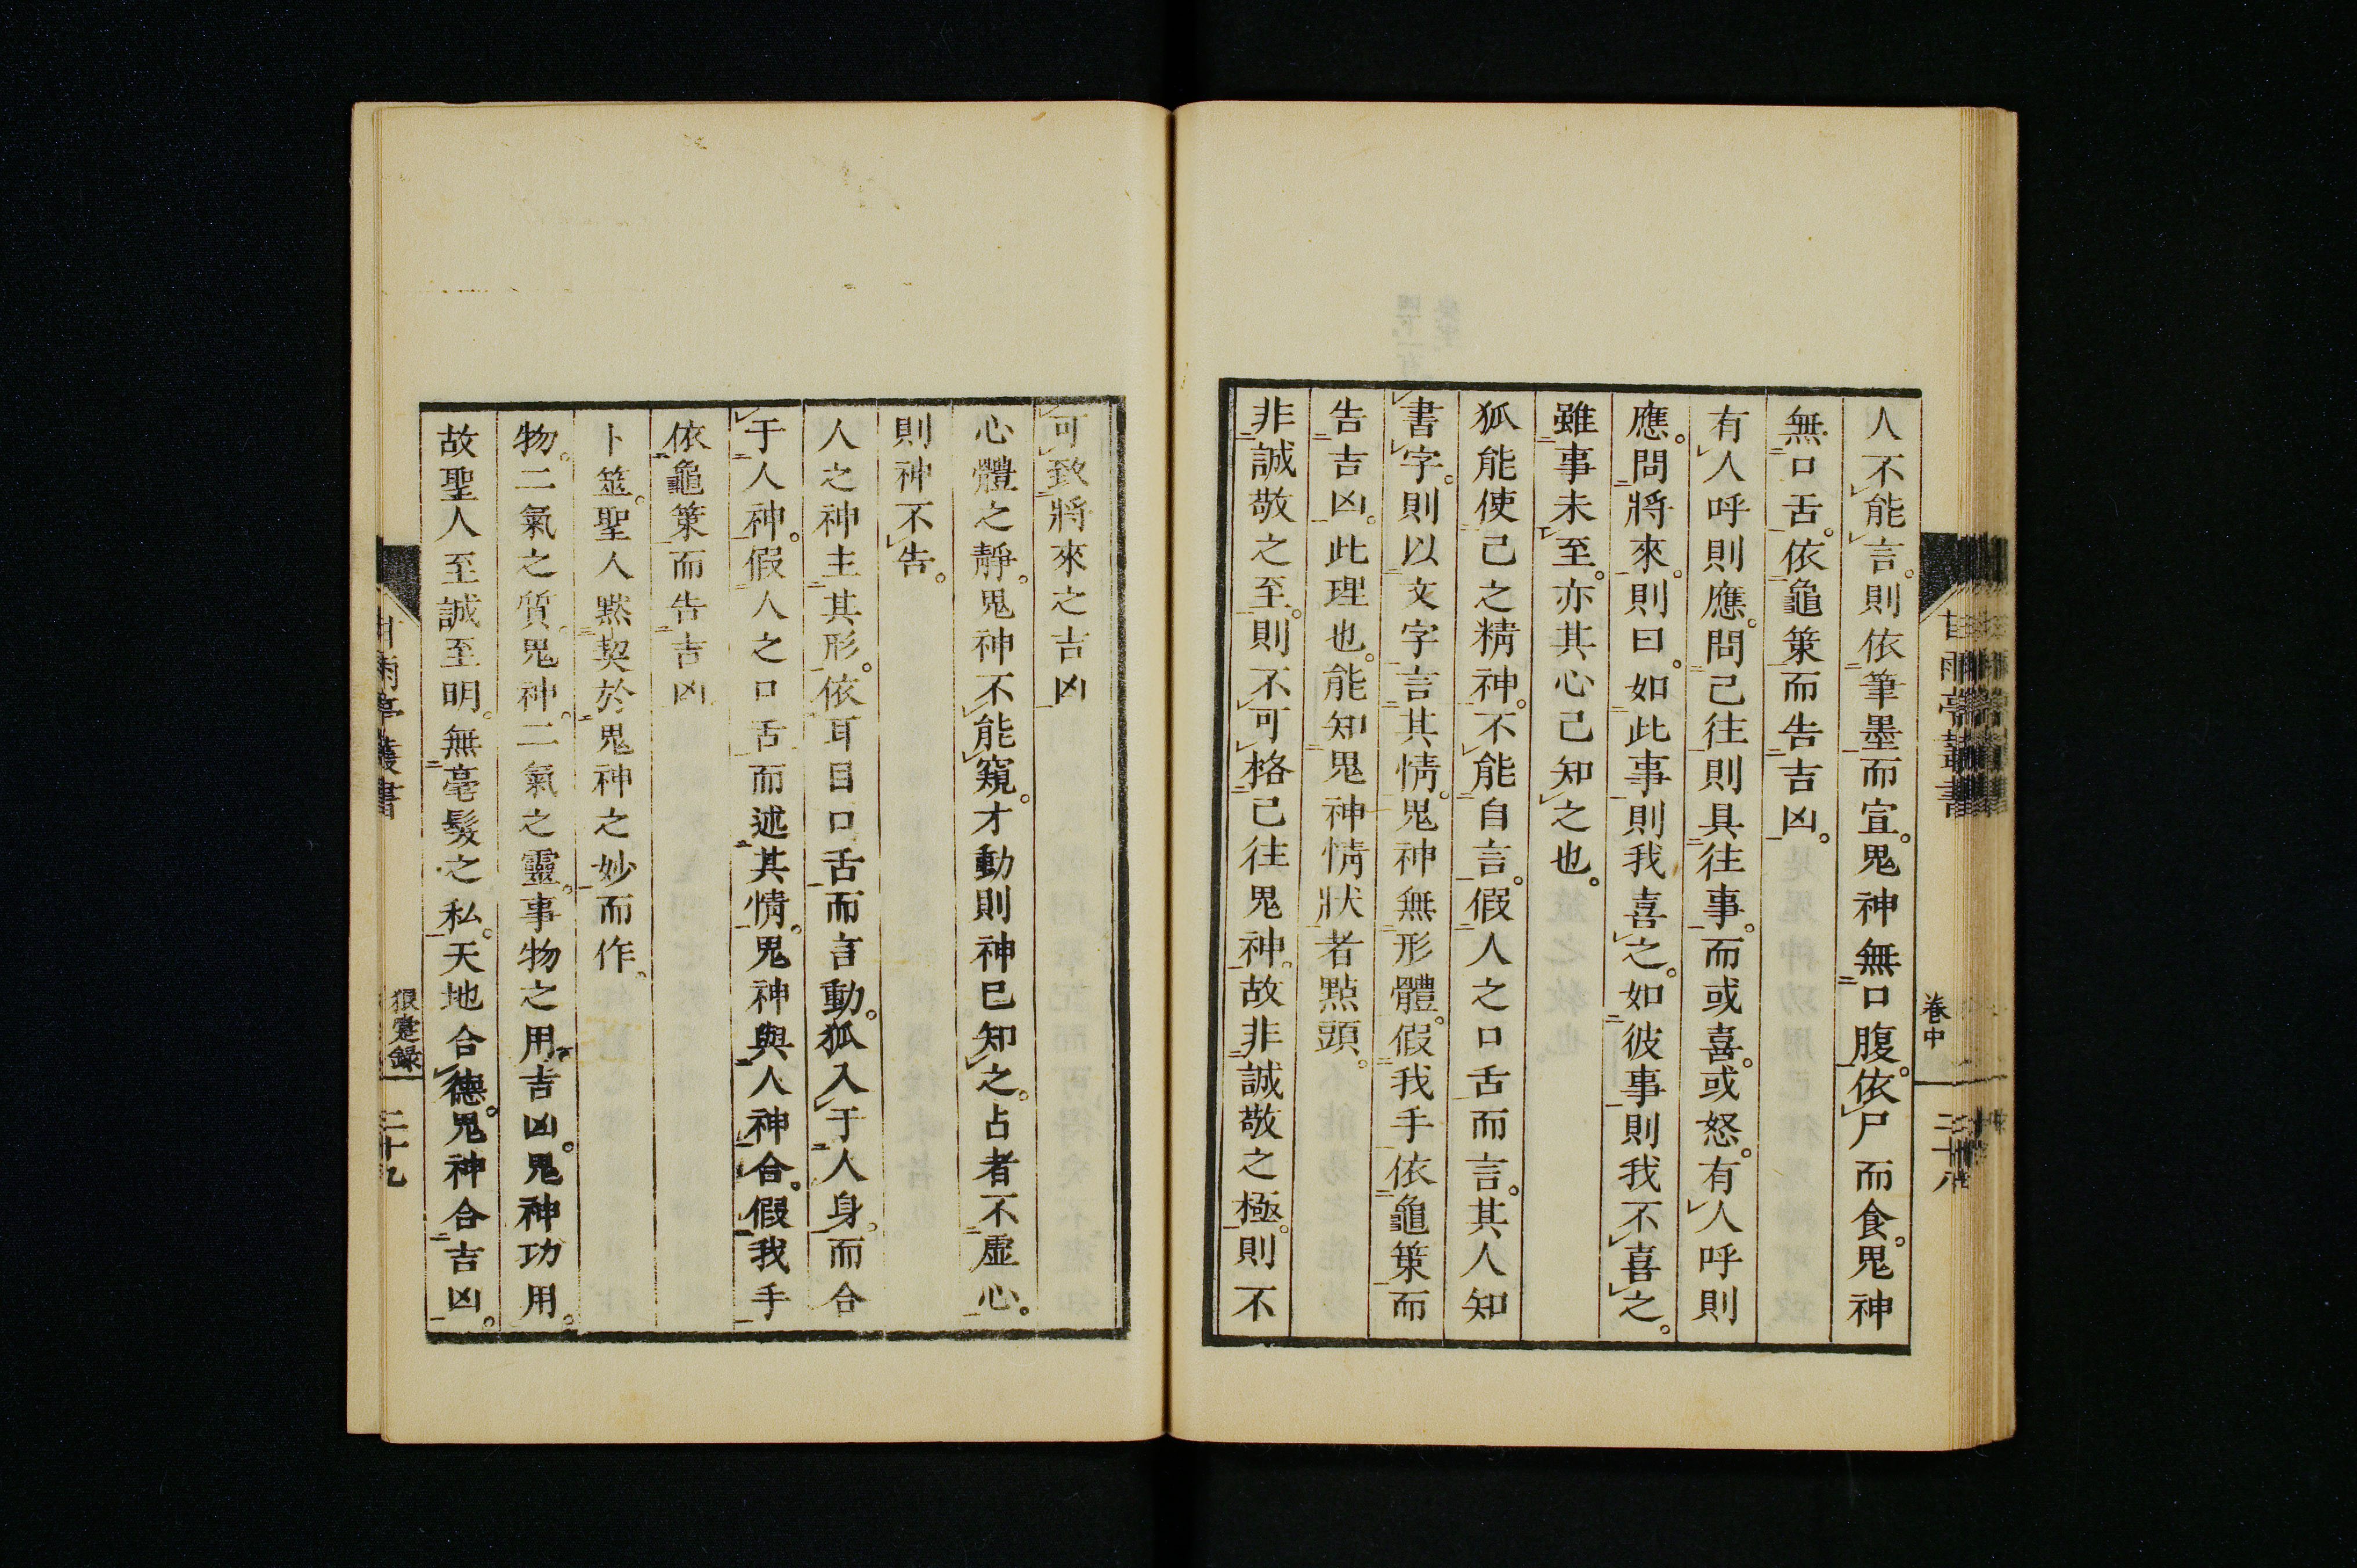 人不能言。則依筆墨而宣。鬼神無口腹。依尸而食。鬼神
無口舌。依龜筴而告吉凶。
有人呼則應。問己往則具往事。而或喜。或怒。有人呼則
應。問將來。則曰。如此事則我喜之。如彼事則我不喜之。
雖事未至。亦其心己知之也。
狐能使己之精神。不能自言。假人之口舌而言。其人知
書字。則以文字言其情。鬼神無形體。假我手依龜筴而
告吉凶。此理也。能知鬼神情狀者點頭。
非誠敬之至。則不可格已往鬼神。故非誠敬之極。則不
甘雨亭叢書
卷中
二十八
可致將來之吉凶
心體之靜。鬼神不能窺。才動則神已知之。占者不虛心。
則神不告。
人之神主其形。依耳目口舌而言動。狐入于人身。而合
于人神。假人之口舌而述其情。鬼神與人神合。假我手
依龜筴而告吉凶
卜筮。聖人黙契於鬼神之妙而作。
物。二氣之質。鬼神。二氣之靈。事物之用。吉凶。鬼神功用。
故聖人至誠至明。無毫髮之私。天地合德。鬼神合吉凶。
甘雨亭叢書
狼疐錄
二十九